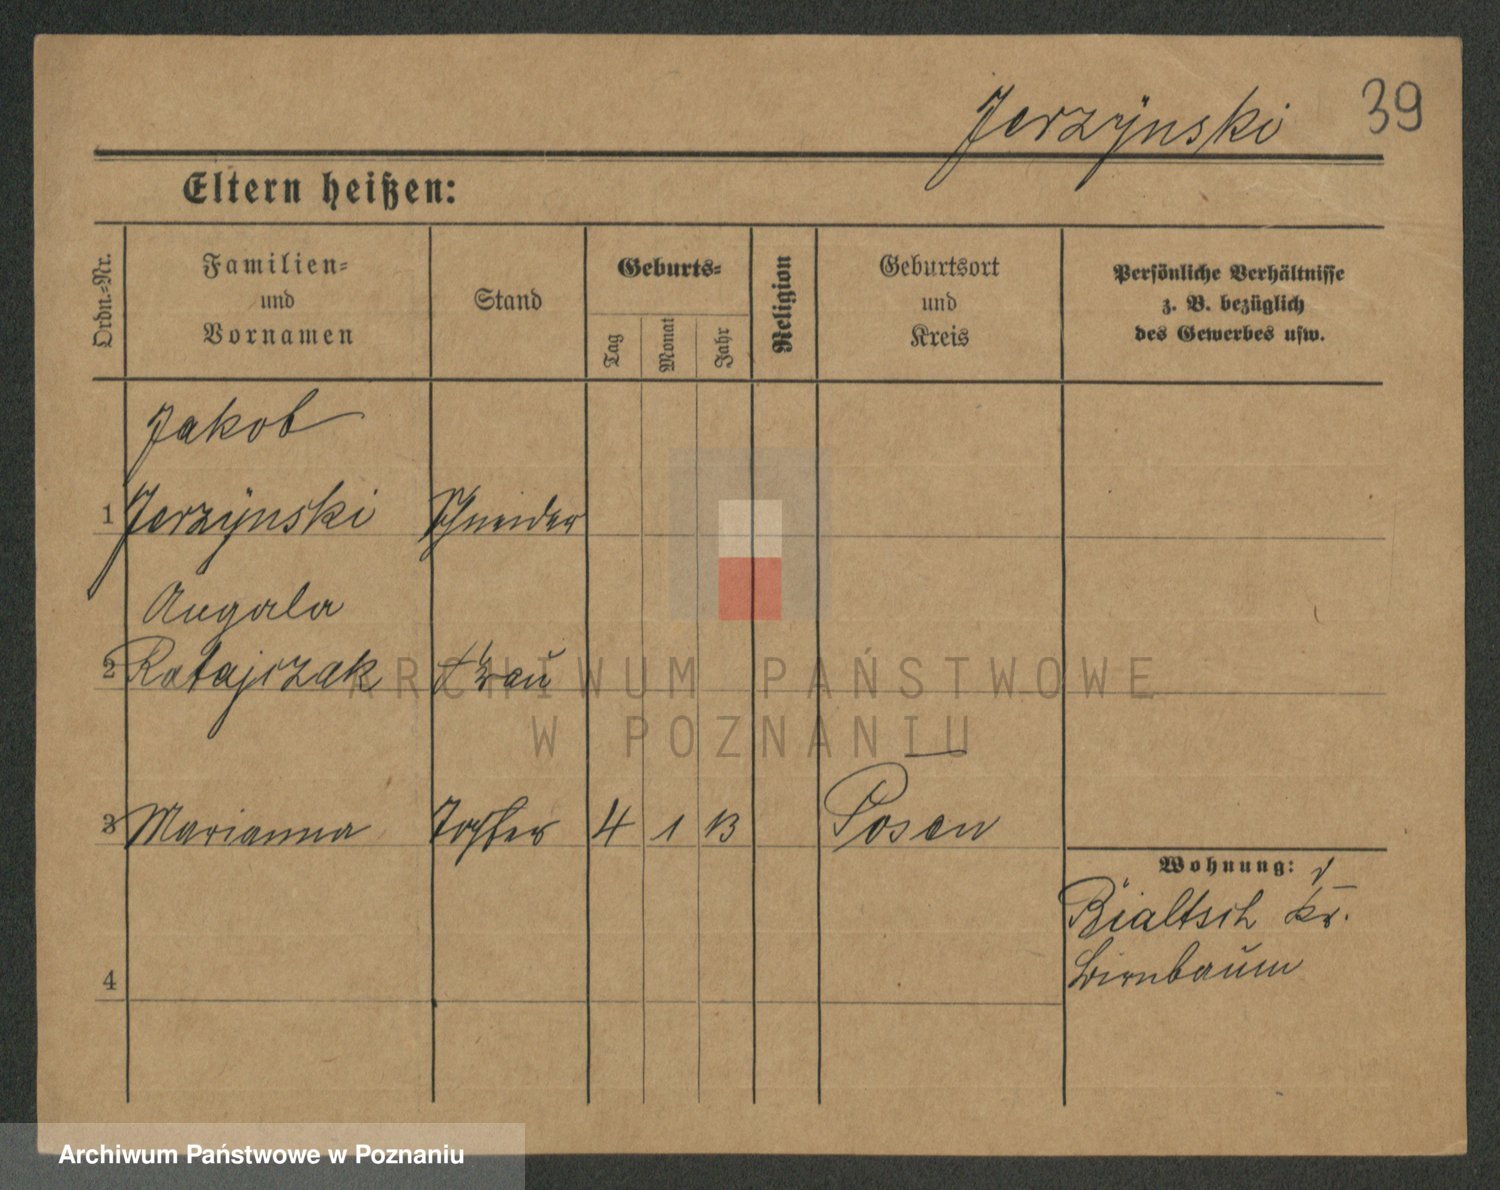 Jerzÿnski 39
Eltern heißen:
Ordn.-Nr.
Familien-
und
Vornamen
Stand
Geburts-
Tag
Monat
Jahr
Religion
Geburtsort
und
Kreis
Persönliche Verhältnisse
z. B. bezüglich
des Gewerbes usw.
Jakob
1 Jerzÿnski Schneider
Angela
2 Ratajczak Frau
ARCHIWUM PAŃSTWOWE
W POZNANIU
3 Marianna Tochter 4 1 13 Posen
Wohnung:
Bialtsch Kr.
Birnbaum
4
Archiwum Państwowe w Poznaniu